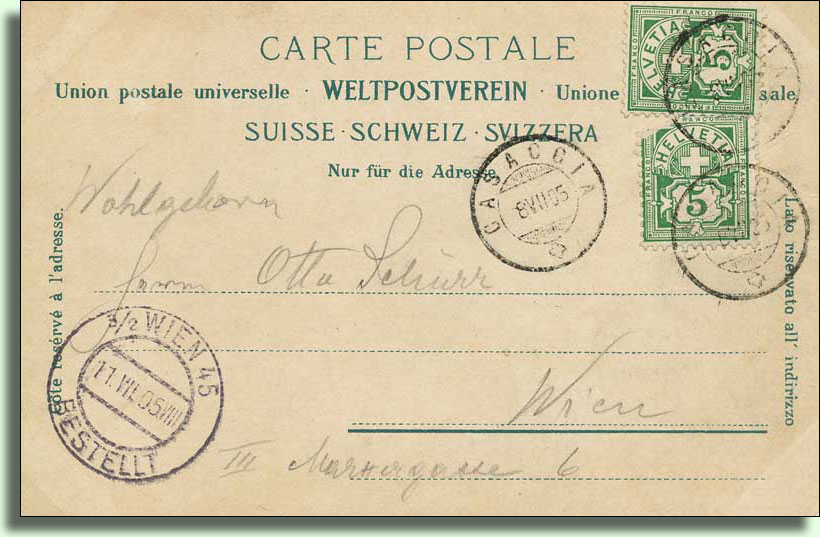 CARTE POSTALE
Union postale universelle · WELTPOSTVEREIN · Unione sale
SUISSE · SCHWEIZ · SVIZZERA
Nur für die Adresse
FRANCO HELVETIA 5 FRANCO
FRANCO HELVETIA 5 FRANCO
CASACCIA
8 VII 05
Wohlgeborn
Herrn Otto Schurr
Wien
III 6
Côté réservé à l'adresse.
Lato riservato all' indirizzo
3/2 WIEN 45
11.VII.05
BESTELLT